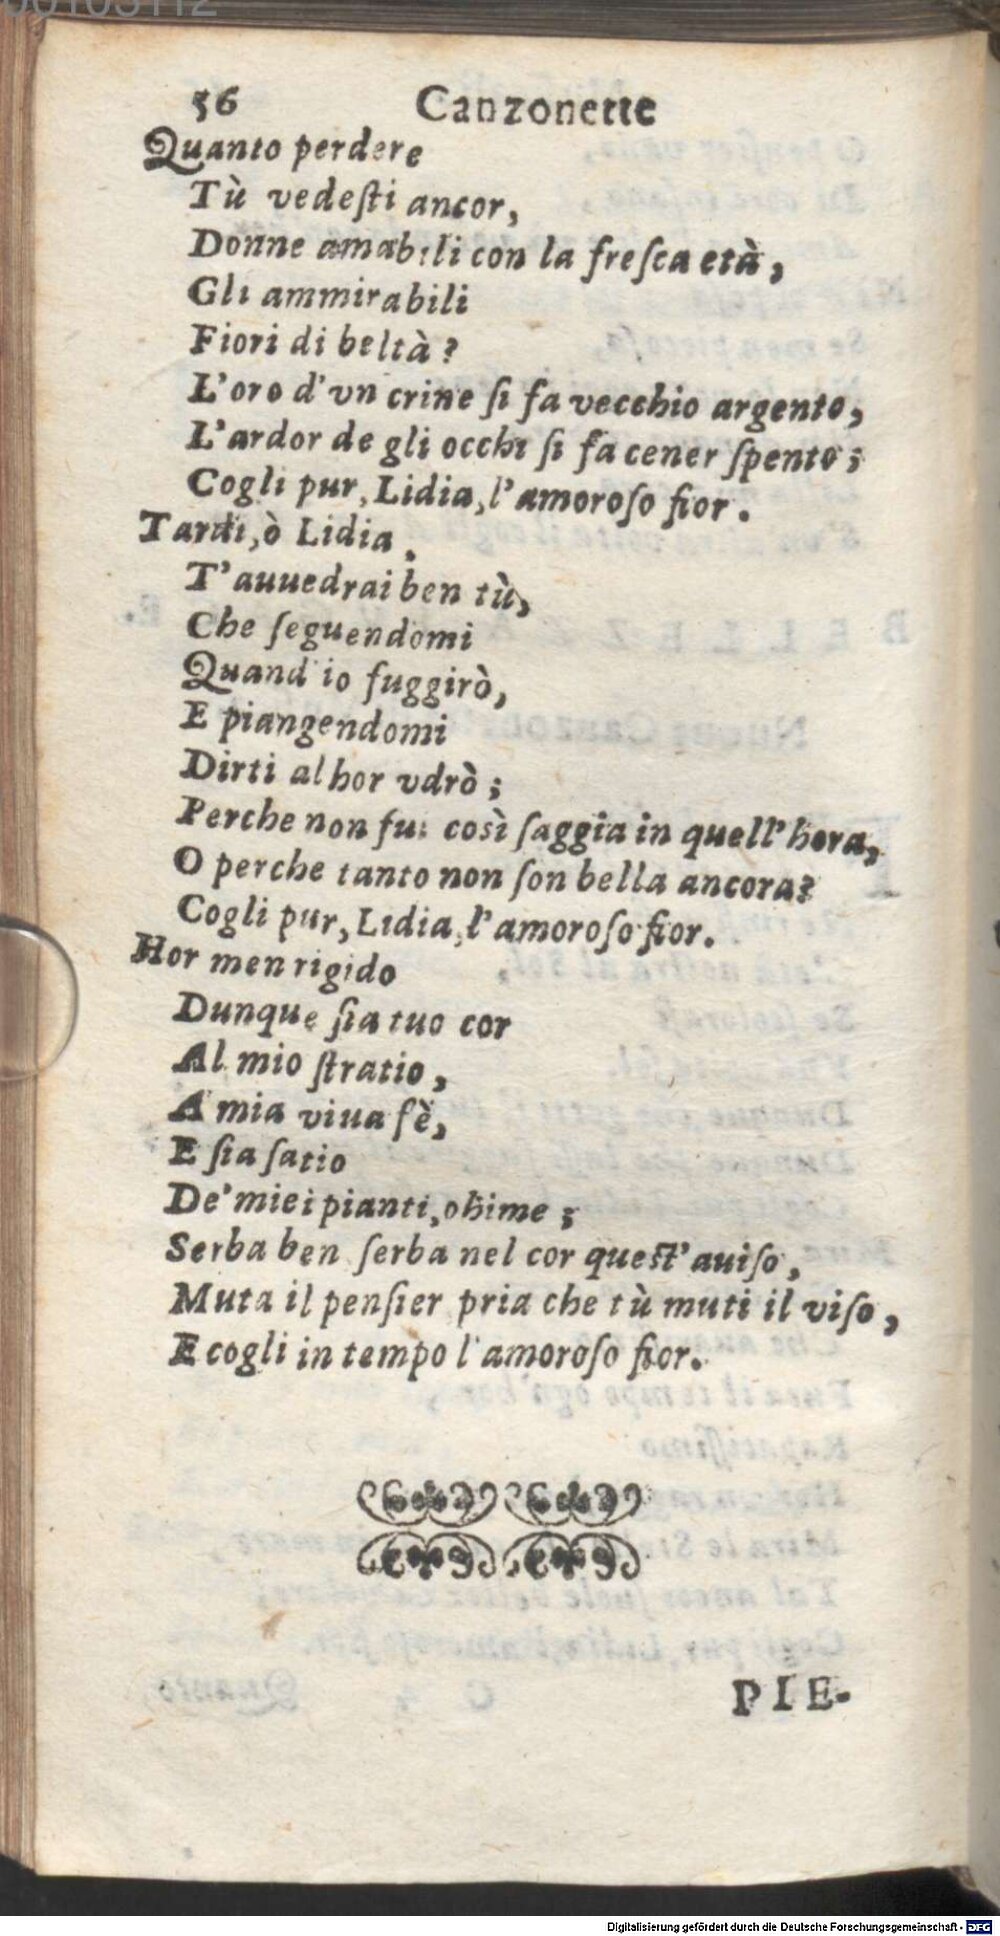 56 Canzonette
Quanto perdere
Tù vedeſti ancor,
Donne amabili con la freſca età,
Gli ammirabili
Fiori di beltà?
L'oro d'vn crine ſi fa vecchio argento,
L'ardor de gli occhi ſi fa cener ſpento;
Cogli pur, Lidia, l'amoroſo fior.
Tardi, ò Lidia,
T'auuedrai ben tù,
Che ſeguendomi
Quand'io fuggirò,
E piangendomi
Dirti alhor vdrò;
Perche non fui così ſaggia in quell'hora,
O perche tanto non ſon bella ancora?
Cogli pur, Lidia, l'amoroſo fior.
Hor men rigido
Dunque ſia tuo cor
Al mio ſtratio,
A mia viua fè,
E ſia ſatio
De' miei pianti, ohime;
Serba ben ſerba nel cor queſt'auiſo,
Muta il penſier pria che tù muti il viſo,
E cogli in tempo l'amoroſo fior.
PIE-
Digitalisierung gefördert durch die Deutsche Forschungsgemeinschaft - DFG